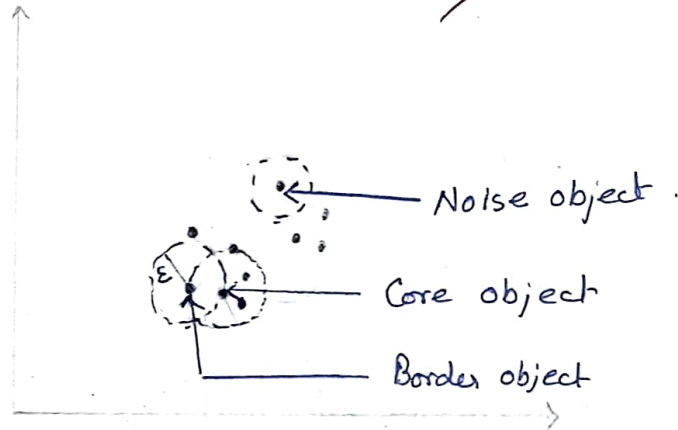 Noise object.
ε
Core object
Border object